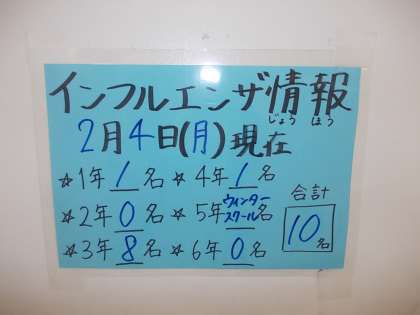 インフルエンザ情報
じょうほう
2月4日(月)現在
☆1年 1 名 ☆4年 1 名
☆2年 0 名 ☆5年 ウィンタースクール 名
☆3年 8 名 ☆6年 0 名
合計
10名